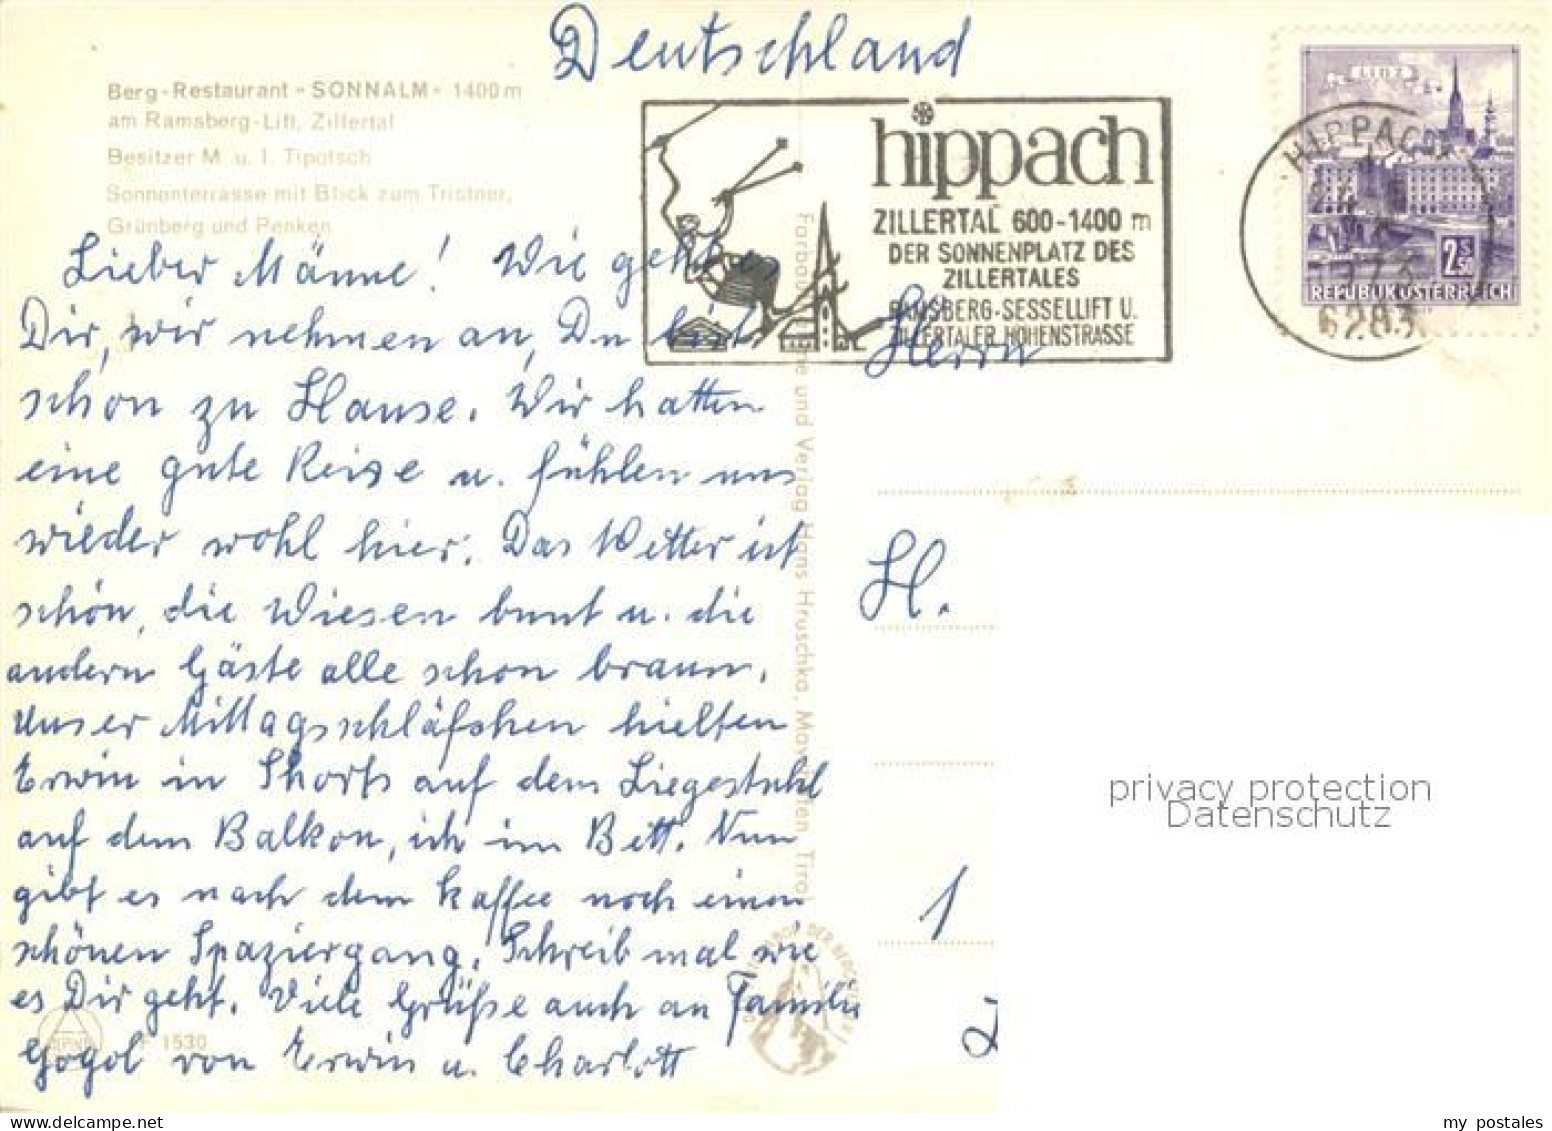 Deutschland
Berg-Restaurant »SONNALM« 1400 m
am Ramsberg-Lift, Zillertal
Besitzer M. u. I. Tipotsch
Sonnenterrasse mit Blick zum Tristner,
Grünberg und Penken
Lieber Männe! Wie geht es
Dir, wir nehmen an, Du bist
schon zu Hause. Wir hatten
eine gute Reise u. fühlen uns
wieder wohl hier. Das Wetter ist
schön, die Wiesen bunt u. die
andern Gäste alle schon braun.
Unser Mittagsschläfchen hielten
Erwin in Shorts auf dem Liegestuhl
auf dem Balkon, ich im Bett. Nun
gibt es nach dem Kaffee noch einen
schönen Spaziergang. Schreib mal wie
es Dir geht. Viele Grüße auch an Familie
Gogol von Erwin u. Charlott
F 1530
ALPINA
Hans Hruschka, Mayrhofen, Tirol
hippach
ZILLERTAL 600-1400 m
DER SONNENPLATZ DES
ZILLERTALES
RAMSBERG-SESSELLIFT U.
ZILLERTALER HÖHENSTRASSE
LINZ
2.50 S
REPUBLIK ÖSTERREICH
HIPPACH
6283
Herrn
H.
1
privacy protection
Datenschutz
my postales